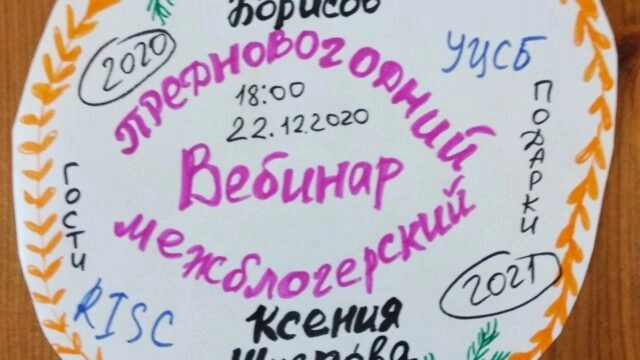 Борисов
2020
Предновогодний
УЦСБ
18:00
22.12.2020
Вебинар
межблогерский
ГОСТИ
ПОДАРКИ
RISC
2021
Ксения